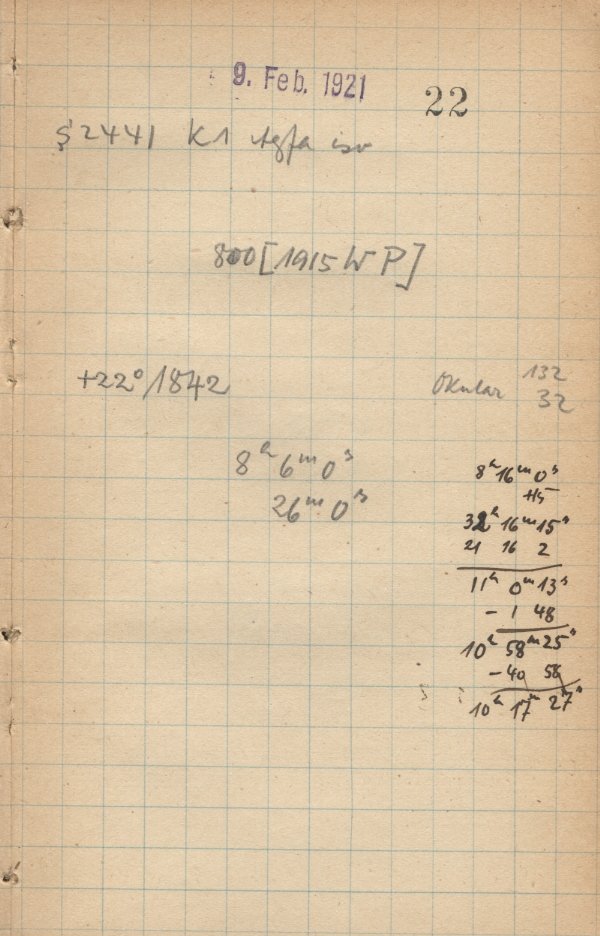 9. Feb. 1921
22
2441 K1 Agfa iso
800 [1915 W P]
+22° 1842
Okular 132
32
8ʰ 6ᵐ 0ˢ
26ᵐ 0ˢ
8ʰ 16ᵐ 0ˢ
+15
32ʰ 16ᵐ 15ˢ
21 16 2
11ʰ 0ᵐ 13ˢ
- 1 48
10ʰ 58ᵐ 25ˢ
- 40 58
10ʰ 17ᵐ 27ˢ